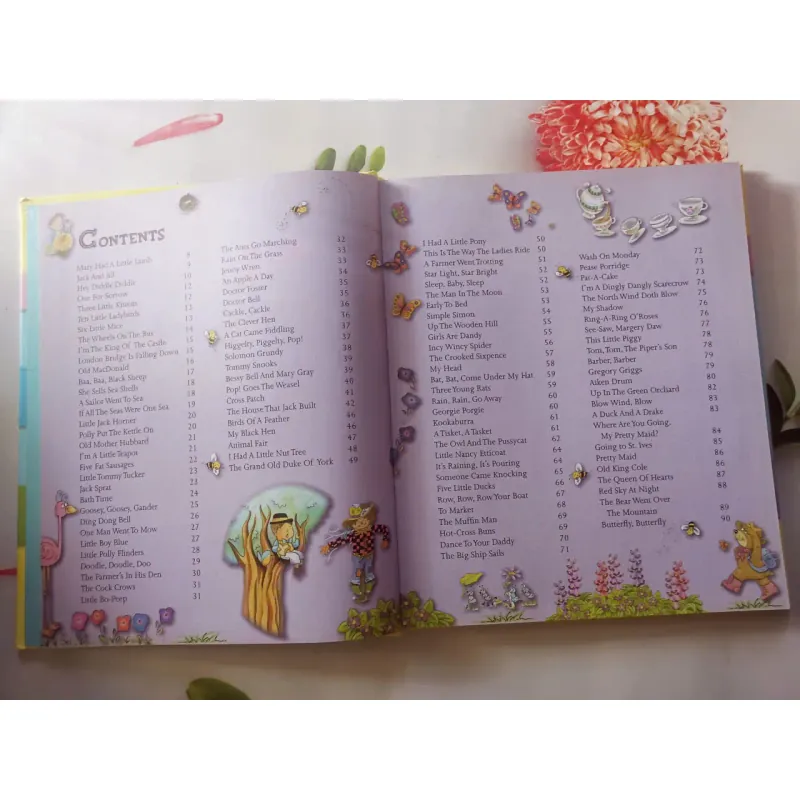 CONTENTS
Mary Had A Little Lamb 8
Jack And Jill 9
Hey Diddle Diddle 10
One For Sorrow 11
Three Little Kittens 12
Ten Little Ladybirds
Six Little Mice
The Wheels On The Bus
I'm The King Of The Castle 15
London Bridge Is Falling Down
Old MacDonald
Baa, Baa, Black Sheep
She Sells Sea Shells
A Sailor Went To Sea 17
If All The Seas Were One Sea
Little Jack Horner
Polly Put The Kettle On
Old Mother Hubbard
I'm a Little Teapot 21
Five Fat Sausages 22
Little Tommy Tucker 23
Jack Sprat 23
Bath Time 24
Goosey, Goosey, Gander 25
Ding Dong Bell 26
One Man Went To Mow 27
Little Boy Blue 27
Little Polly Flinders 28
Doodle, Doodle, Doo 29
The Farmer's In His Den 30
The Cock Crows
Little Bo-Peep 31
The Bats Go Marching 32
Rain On The Grass 33
Jenny Wren
An Apple A Day 34
Doctor Foster 35
Doctor Bell 35
Cackle, Cackle 36
The Clever Hen 36
A Cat Came Fiddling 37
Higgelty, Piggelty, Pop! 37
Solomon Grundy 38
Tommy Snooks 39
Bessy Bell And Mary Gray 39
Pop! Goes The Weasel 40
Cross Patch 41
The House That Jack Built
Birds Of A Feather 46
My Black Hen 46
Animal Fair 47
I Had A Little Nut Tree 48
The Grand Old Duke Of York 49
I Had A Little Pony 50
This Is The Way The Ladies Ride 50
A Farmer Went Trotting 51
Star Light, Star Bright 51
Sleep, Baby, Sleep 52
The Man In The Moon 52
Early To Bed 53
Simple Simon 54
Up The Wooden Hill 55
Girls Are Dandy 55
Incy Wincy Spider 56
The Crooked Sixpence 56
My Head 57
Bat, Bat, Come Under My Hat 58
Three Young Rats 59
Rain, Rain, Go Away 60
Georgie Porgie 60
Kookaburra 61
A Tisket, A Tasket 61
The Owl And The Pussycat 62
Little Nancy Etticoat 64
It's Raining, It's Pouring 64
Someone Came Knocking 65
Five Little Ducks 66
Row, Row, Row Your Boat 67
To Marker 68
The Muffin Man 69
Hot-Cross Buns 69
Dance To Your Daddy 70
The Big Ship Sails 71
Wash On Monday 72
Pease Porridge 73
Pat-A-Cake 73
I'm A Dingly Dangly Scarecrow 74
The North Wind Doth Blow 75
My Shadow 76
Ring-A-Ring O'Roses 76
See-Saw, Margery Daw 77
This Little Piggy 78
Tom, Tom, The Piper's Son 78
Barber, Barber 79
Gregory Griggs 79
Aiken Drum 80
Up In The Green Orchard 82
Blow Wind, Blow 83
A Duck And A Drake 83
Where Are You Going,
My Pretty Maid? 84
Going to St. Ives 85
Pretty Maid 86
Old King Cole 86
The Queen Of Hearts 87
Red Sky At Night 88
The Bear Went Over
The Mountain 89
Butterfly, Butterfly 90